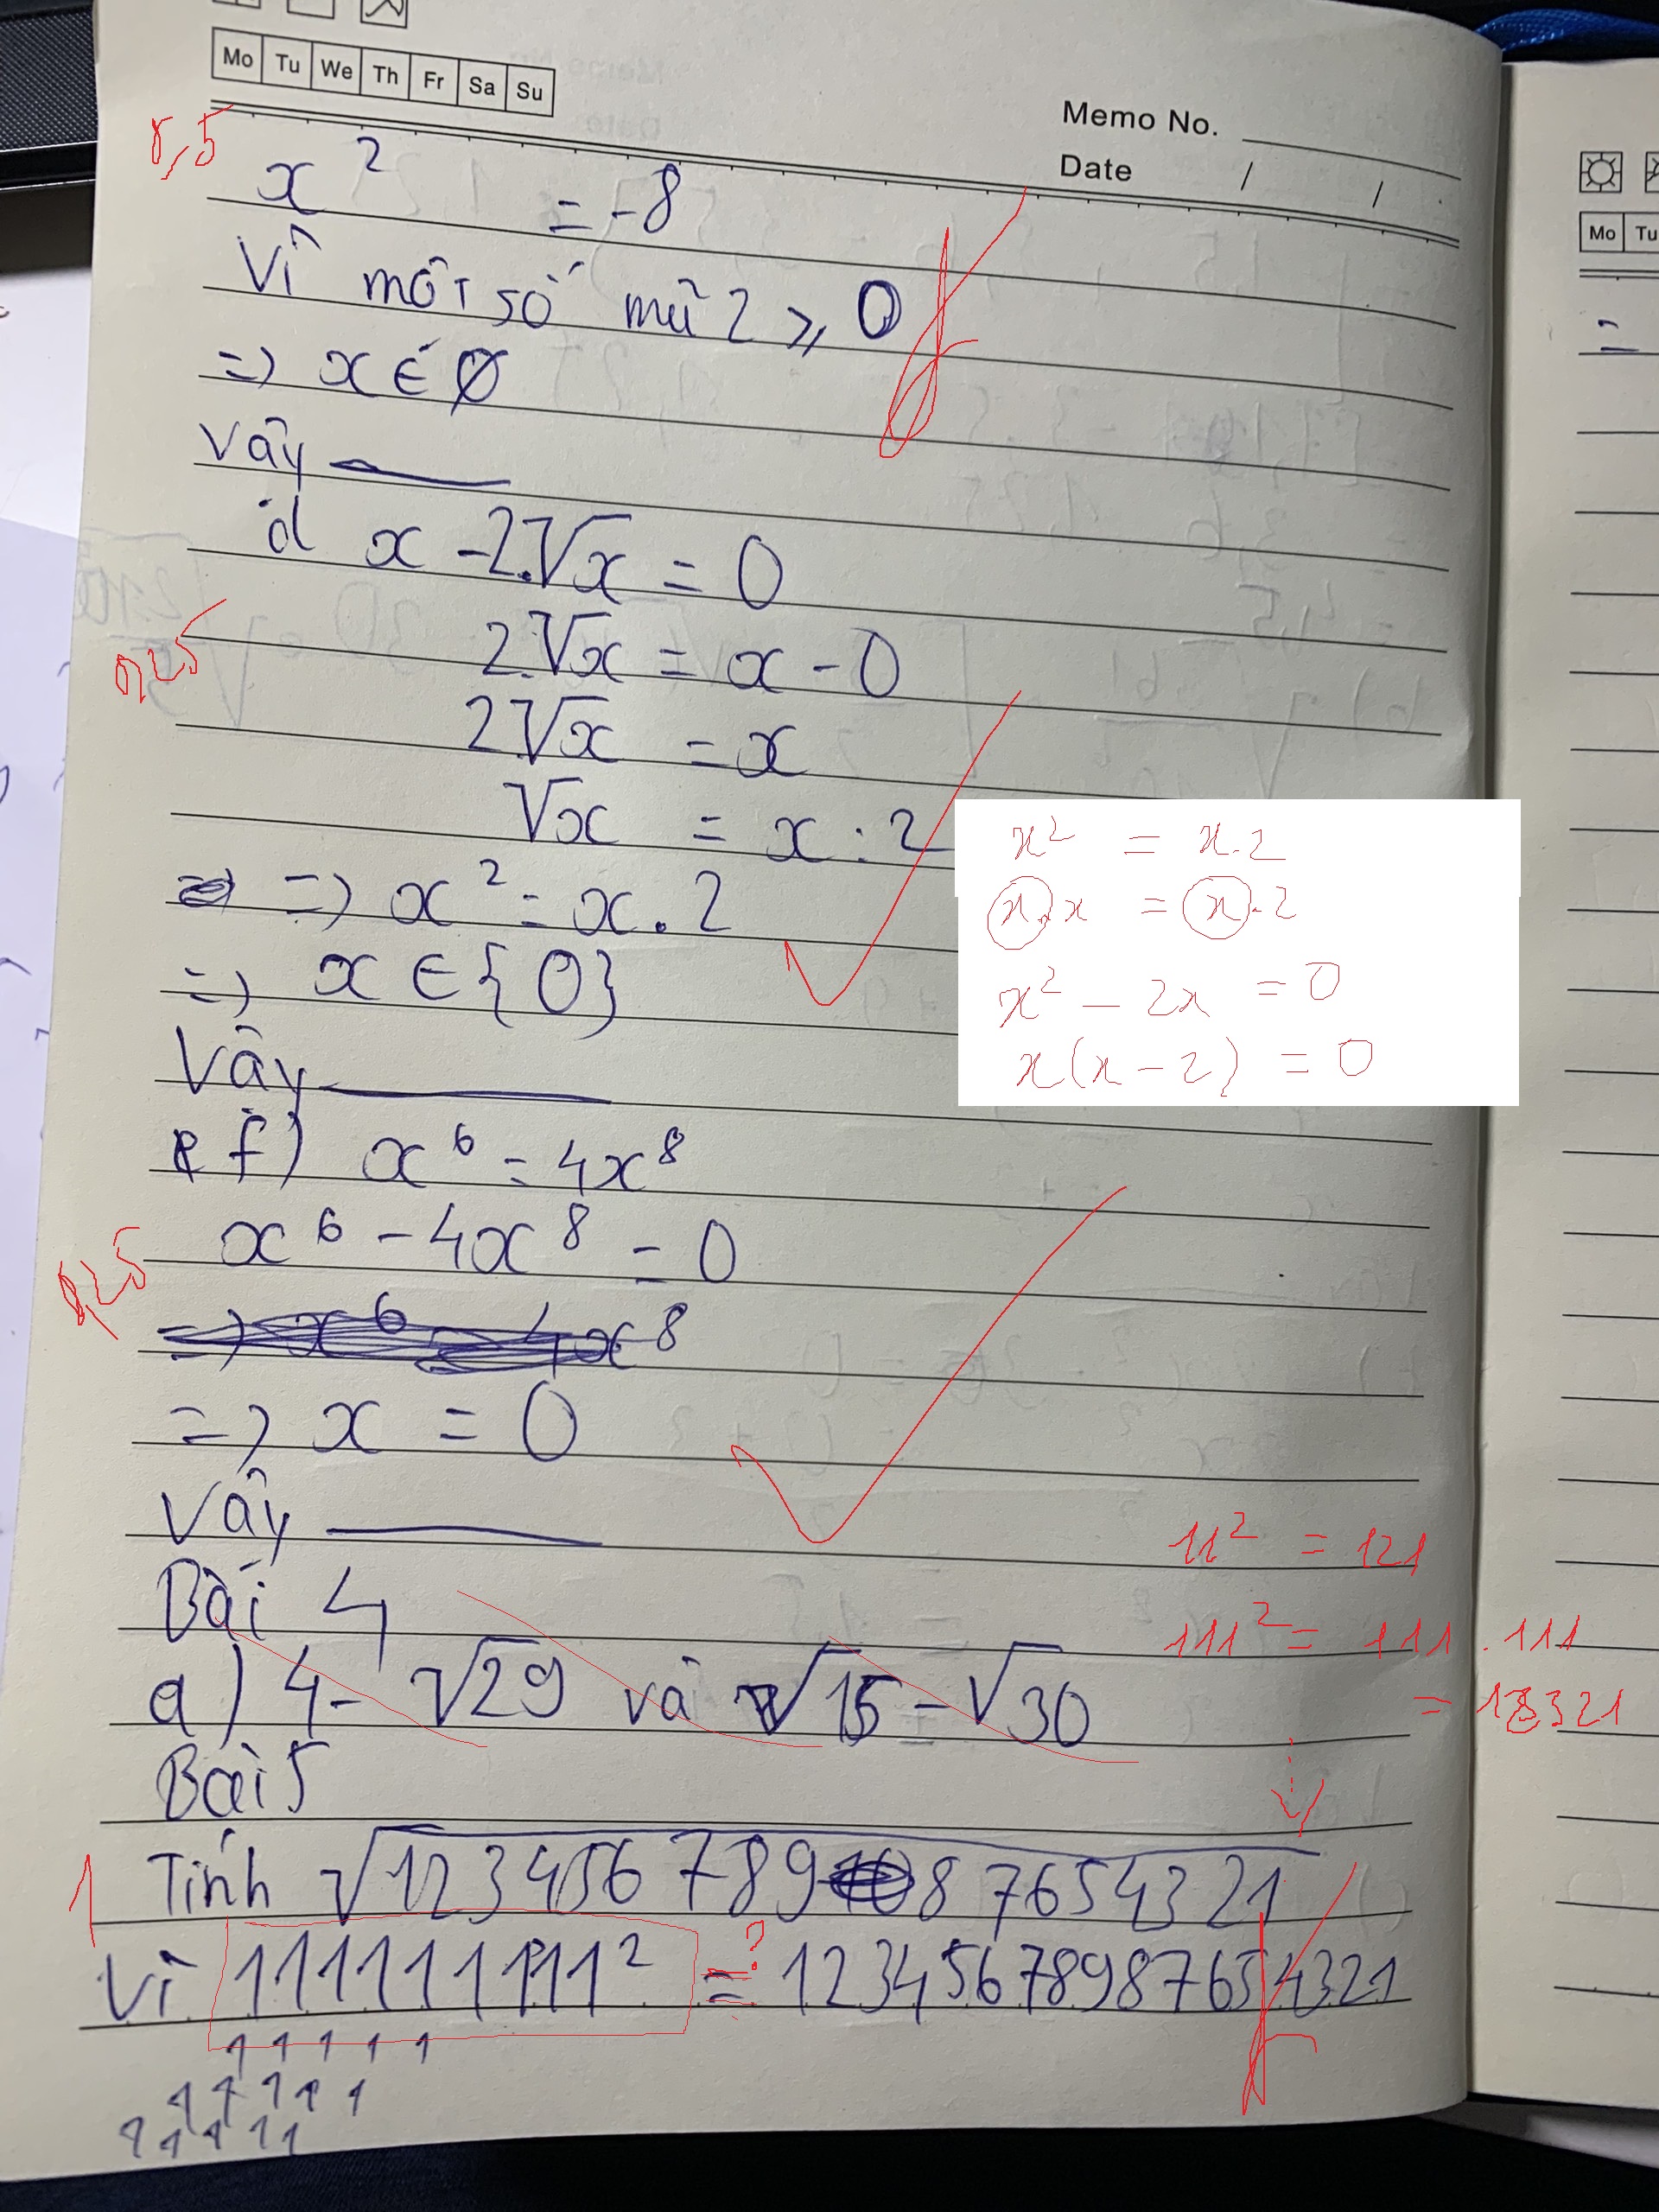 Mo Tu We Th Fr Sa Su
Memo No.
Date / /
Mo Tu
x² = -8
Vì một số mũ 2 ⩾ 0
=> x ∈ Ø
Vậy
d x - 2.√x = 0
0,25
2.√x = x - 0
2√x = x
√x = x : 2
=> x² = x . 2
=> x ∈ {0}
Vậy
x² = x.2
x.x = x.2
x² - 2x = 0
x(x - 2) = 0
f) x⁶ = 4x⁸
x⁶ - 4x⁸ = 0
0,25
=> x = 0
Vậy
11² = 121
111² = 111.111
= 12321
Bài 4
a) 4 - √29 và √15 - √30
Bài 5
1
Tính √12345678987654321
Vì 111111111² = ? 12345678987654321
1 1 1 1 1
1 1 1 1 1
1 1 1 1 1